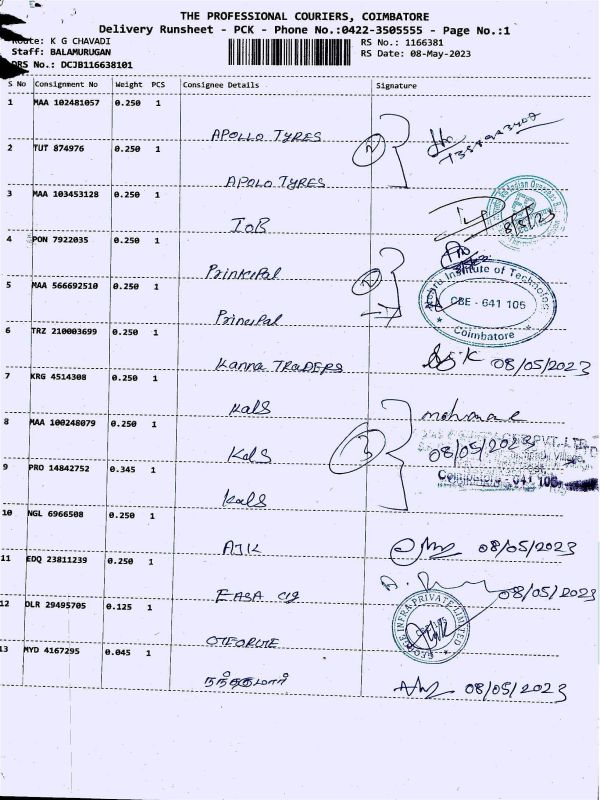 THE PROFESSIONAL COURIERS, COIMBATORE
Delivery Runsheet - PCK - Phone No.:0422-3505555 - Page No.:1
Route: K G CHAVADI
RS No.: 1166381
Staff: BALAMURUGAN
RS Date: 08-May-2023
DRS No.: DCJB116638101
S No Consignment No Weight PCS Consignee Details Signature
1 MAA 102481057 0.250 1
APOLLO TYRES
2 TUT 874976 0.250 1
2
APOLO TYRES
3 MAA 103453128 0.250 1
IOB
8/5/23
4 PON 7922035 0.250 1
Principal
Nehru Institute of Technology
5 MAA 566692510 0.250 1
CBE - 641 105
Principal
Coimbatore
6 TRZ 210003699 0.250 1
Kanna TRADERS
08/05/2023
7 KRG 4514308 0.250 1
Kals
8 MAA 100248079 0.250 1
3
PVT. LTD
Kals
08/05/2023
9 PRO 14842752 0.345 1
Coimbatore - 641 105
Kals
10 NGL 6966508 0.250 1
AJK
08/05/2023
11 EDQ 23811239 0.250 1
EASA clg
08/05/2023
12 DLR 29495705 0.125 1
INFRA PRIVATE LIMITED
13 MYD 4167295 0.045 1
நந்தகுமார்
08/05/2023